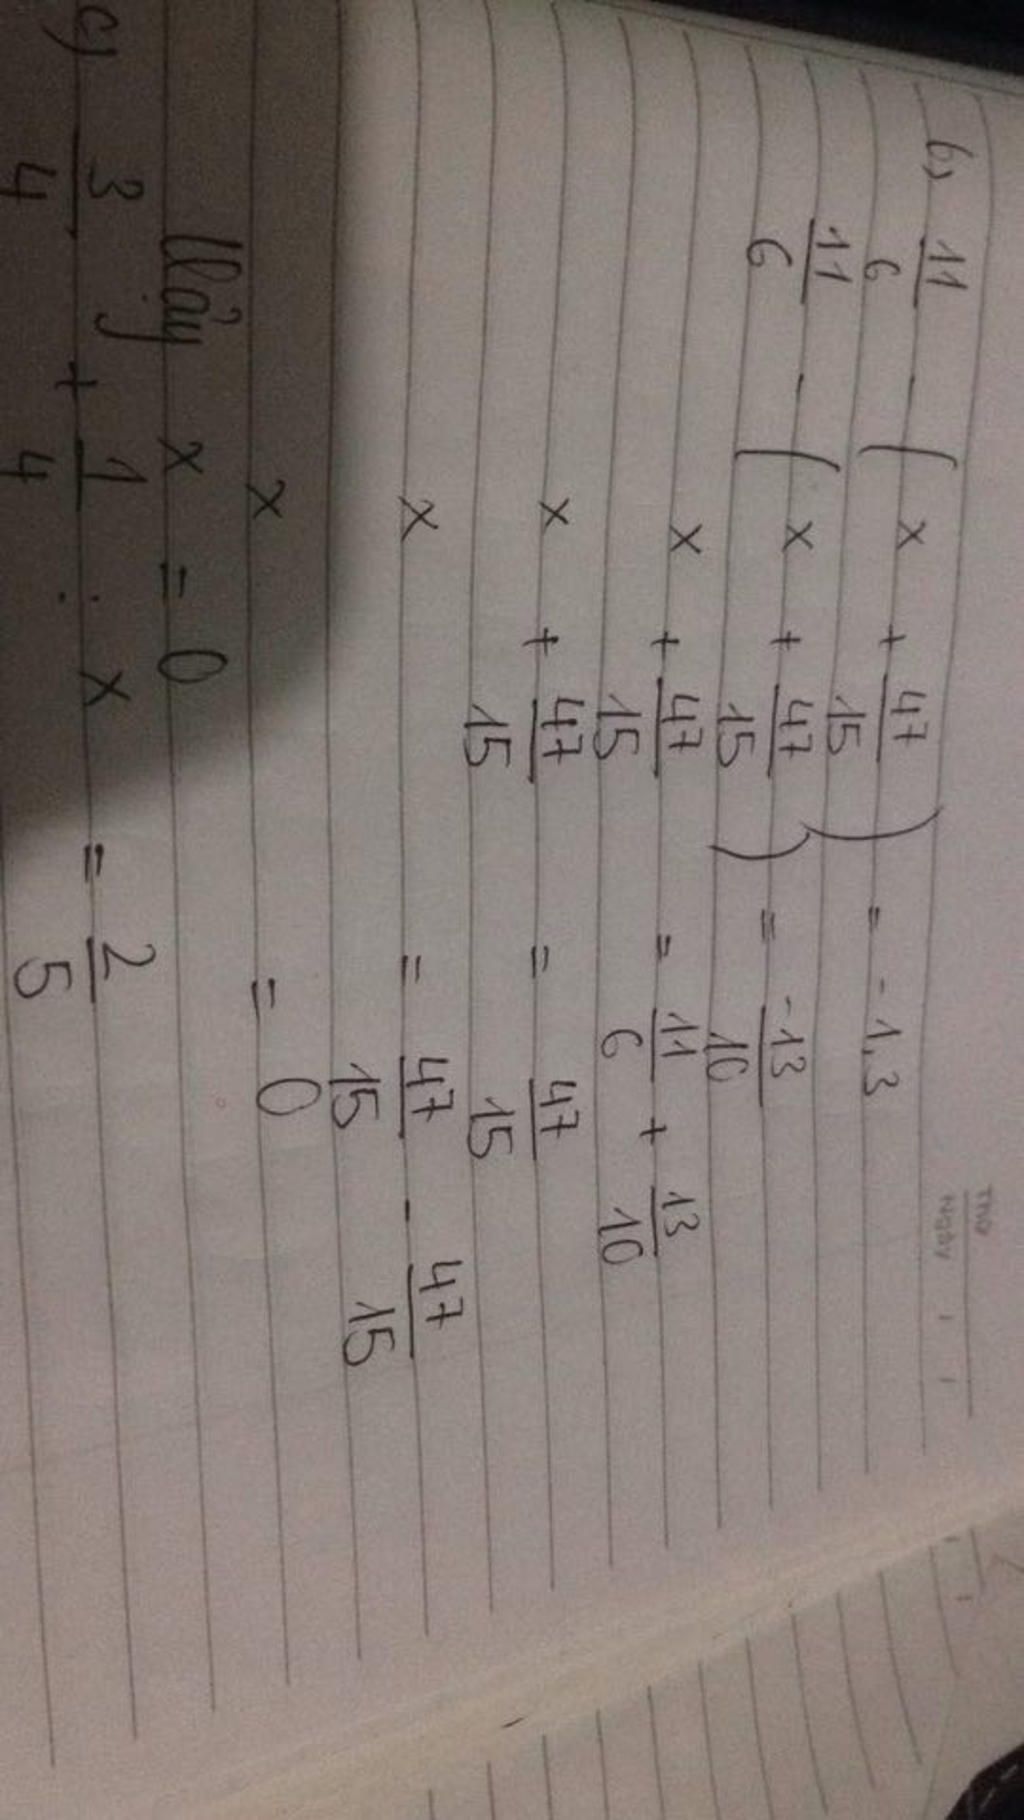 Thứ
Ngày
b, 11/6 - ( x + 47/15 ) = -1,3
11/6 - ( x + 47/15 ) = -13/10
x + 47/15 = 11/6 + 13/10
x + 47/15 = 47/15
x = 47/15 - 47/15
x = 0
Vậy x = 0
c) 3/4 + 1/4 : x = 2/5